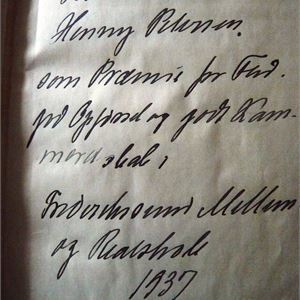 Henny Petersen.
som Præmie for Flid.
god Opførsel og godt Kam-
meratskab i
Frederikssund Mellem
og Realskole
1937